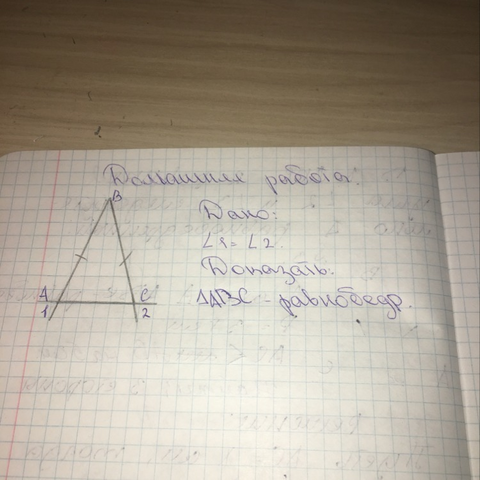 Домашняя работа.
B
Дано:
∠1=∠2.
Доказать:
A C ΔABC - равнобедр.
1 2